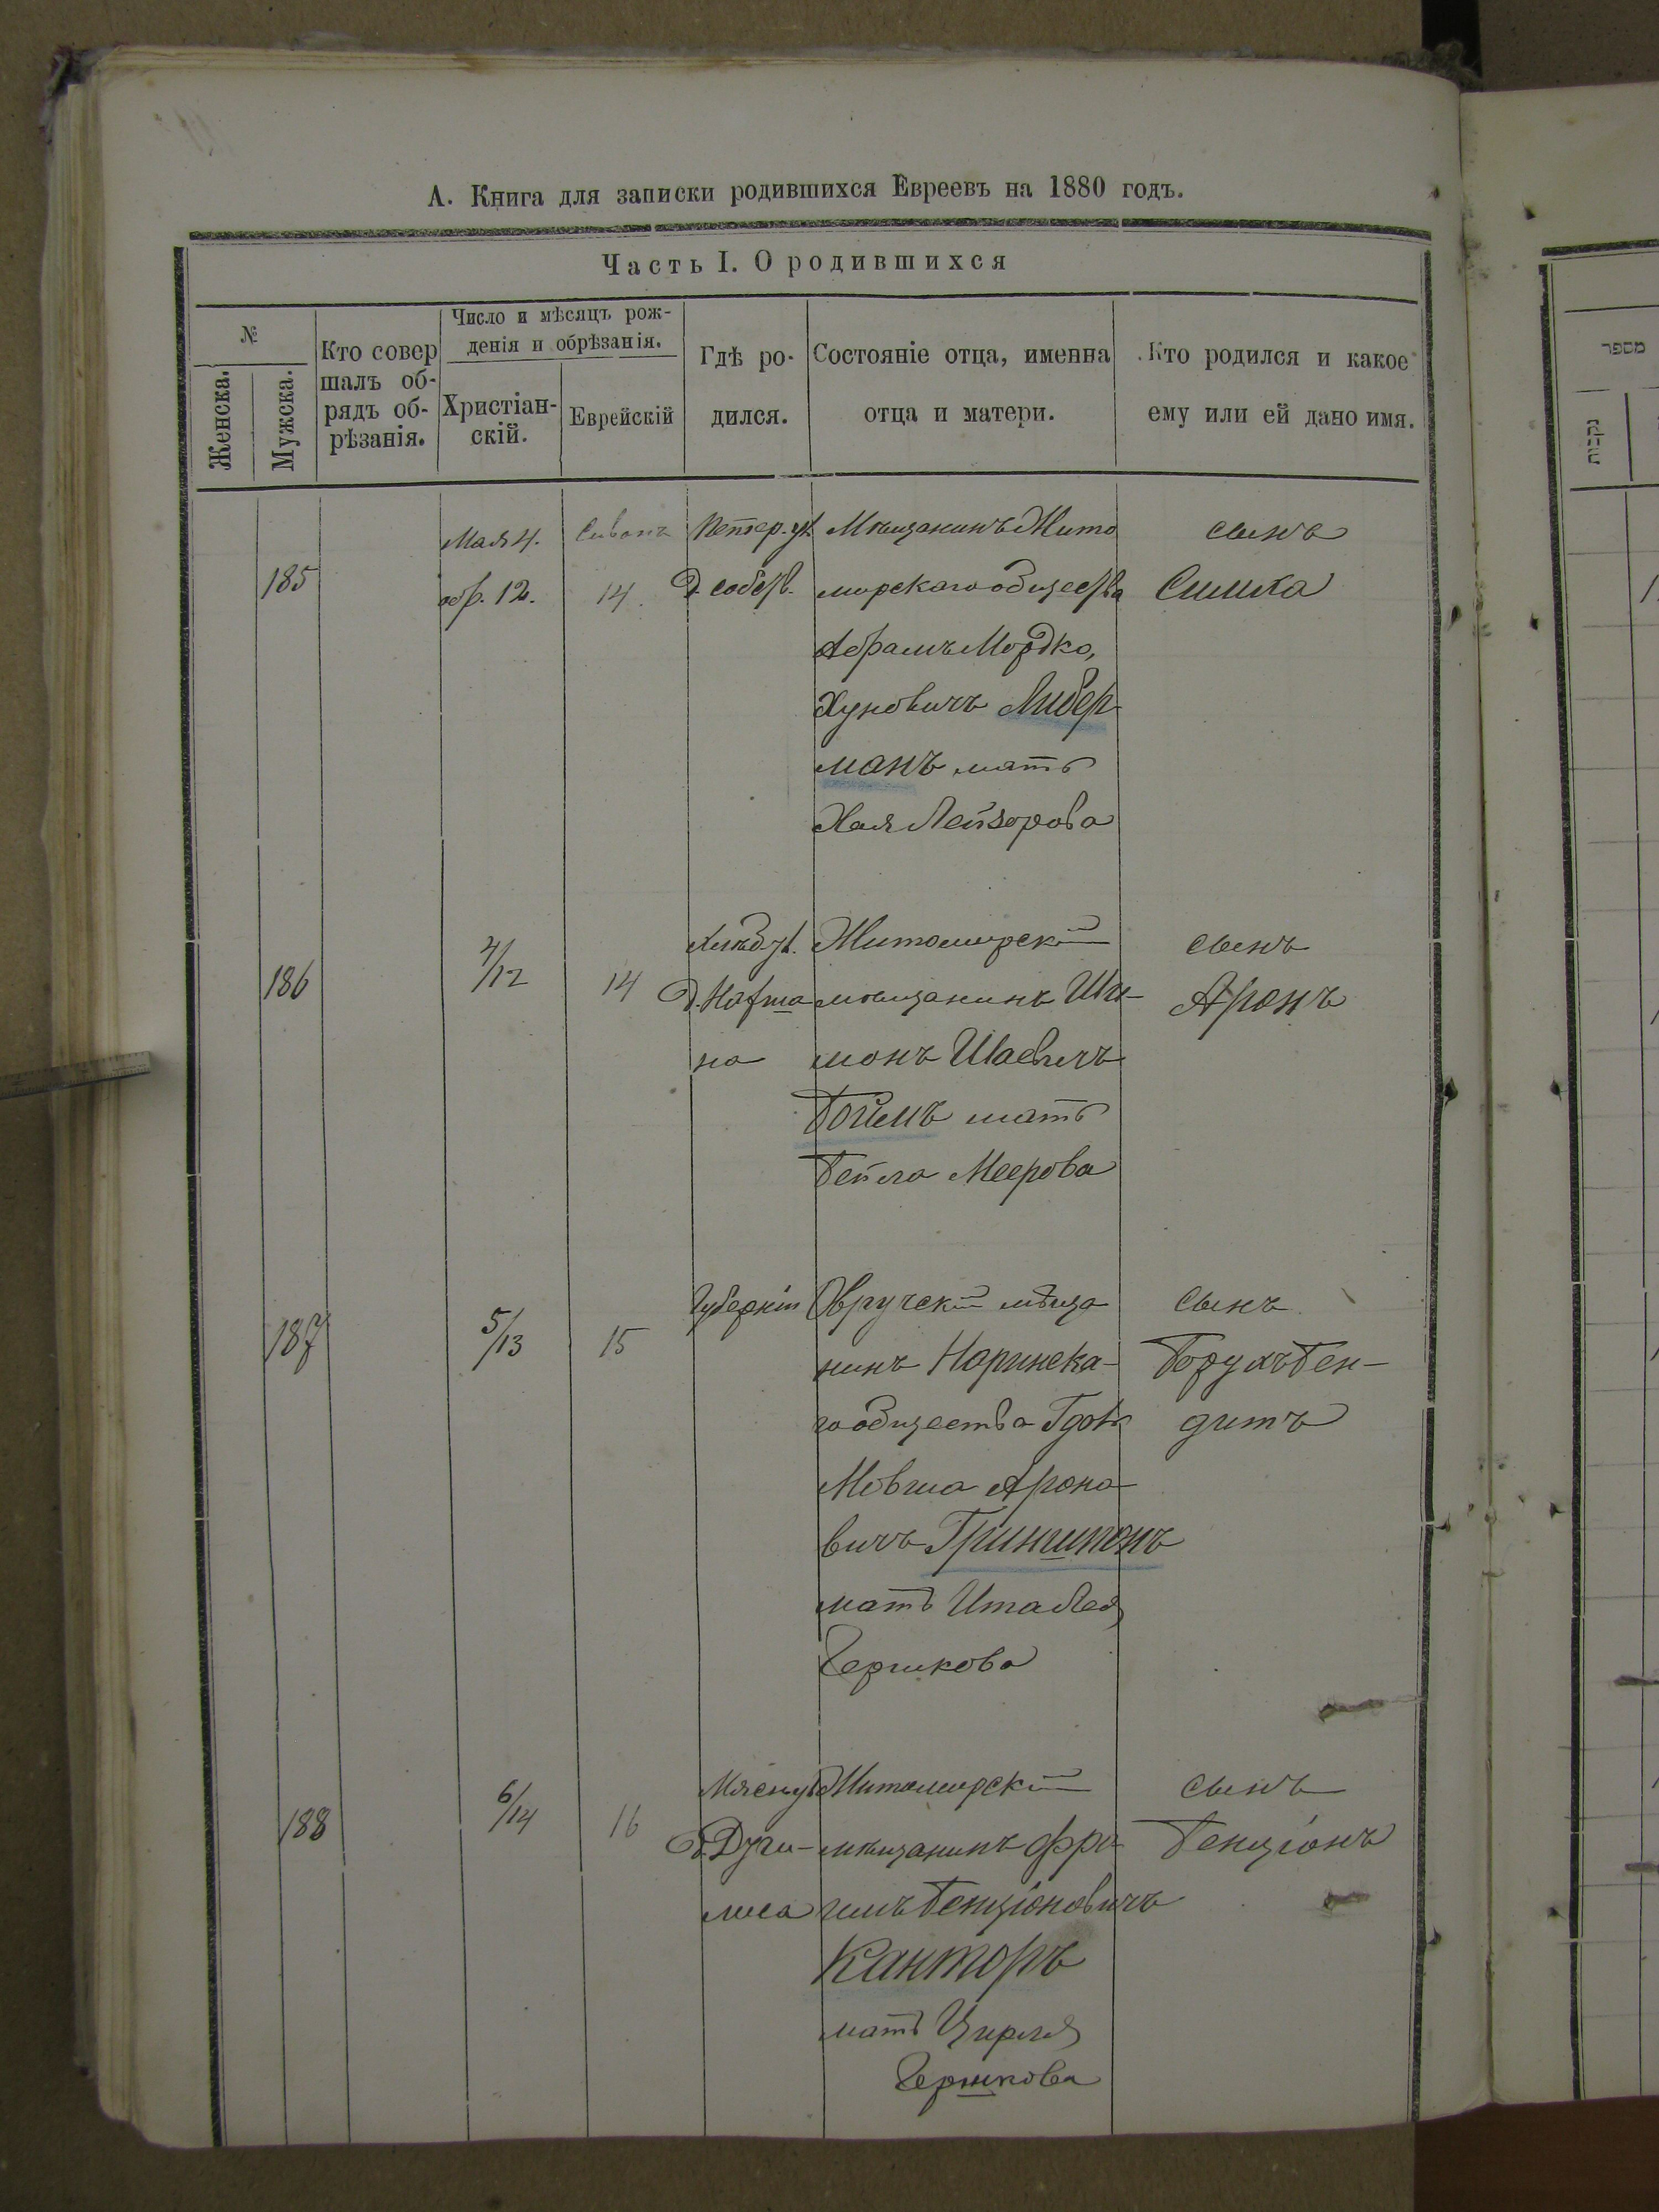 А. Книга для записки родившихся Евреевъ на 1880 годъ.
Часть I. О родившихся
№
Женска.
Мужска.
Кто совер
шалъ об-
рядъ об-
рѣзанія.
Число и мѣсяцъ рож-
денія и обрѣзанія.
Христіан-
скій.
Еврейскій
Гдѣ ро-
дился.
Состояніе отца, именна
отца и матери.
Кто родился и какое
ему или ей дано имя.
185
Мая 4.
обр. 12.
Сивонъ
14.
д. собств.
Мѣщанинъ Жито
мирскаго общества
Абрамъ Мордко,
Хуновичъ Либер-
манъ мать
Хая Лейзорова
сынъ
Симха
186
4/12
14
на
Житомирскій
мѣщанинъ Ши-
монъ Шаевичъ
Боймъ мать
Бейла Меерова
сынъ
Аронъ
187
5/13
15
Губерніи
Овручскій мѣща
нинъ Наринска-
го общества
МовшаАроно-
вичъ Гринштонъ
мать Ита Лея
Гершкова
сынъ
Борухъ Бен-
дитъ
188
6/14
16
Житомирскій
мѣщанинъ Фро-
имъ Бенціоновичъ
Канторъ
мать Цирля
Гершкова
сынъ
Бенціонъ
מספר
נקבות